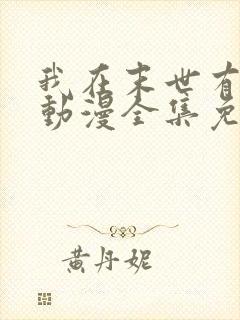 我在末世有
動漫全集免
黃丹妮